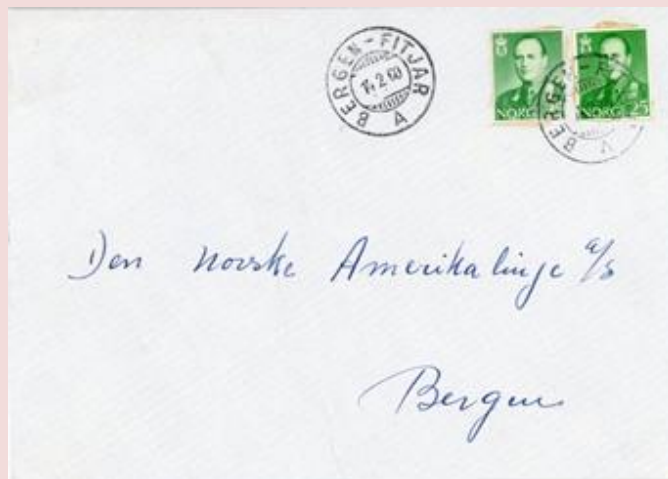 BERGEN-FITJAR
14.2.60
A
NORGE
NORGE 25
BERGEN-FIT
A
Den norske Amerikalinje a/s
Bergen